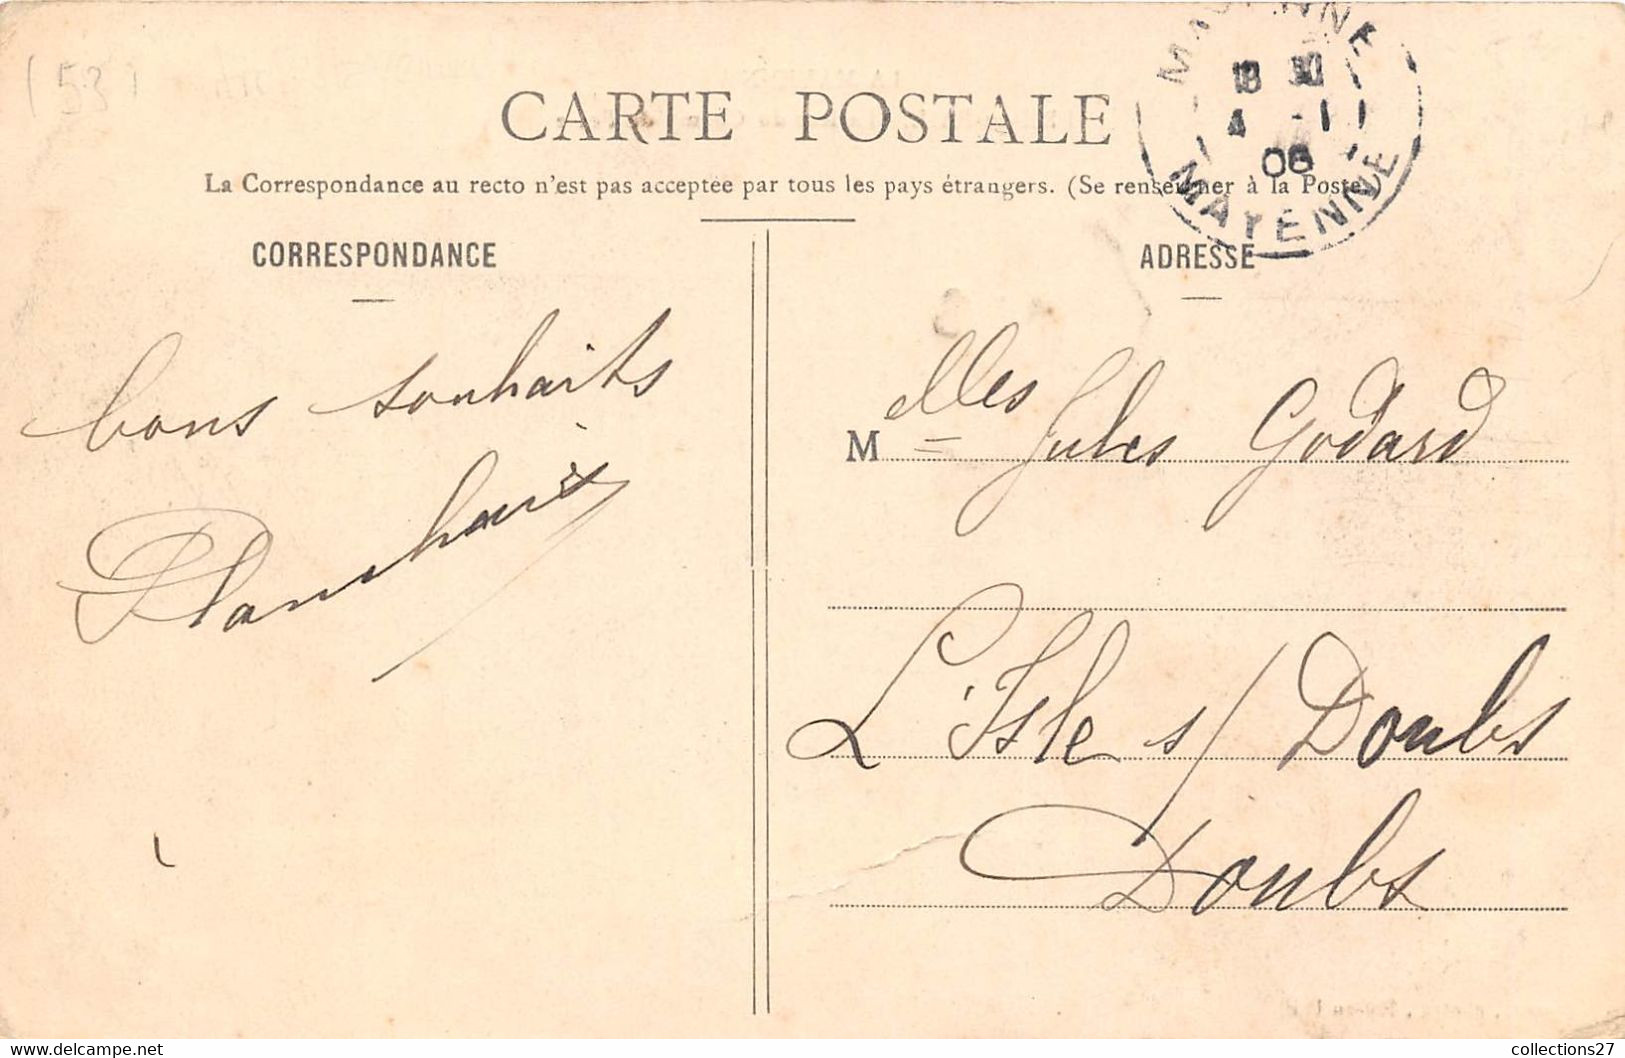 (53)
CARTE POSTALE
La Correspondance au recto n'est pas acceptée par tous les pays étrangers. (Se renseigner à la Poste)
MAYENNE
18 30
4 -1
06
MAYENNE
CORRESPONDANCE
bons souhaits
ADRESSE
Melles Jules Godard
L'Isle s/ Doubs
Doubs
collections27